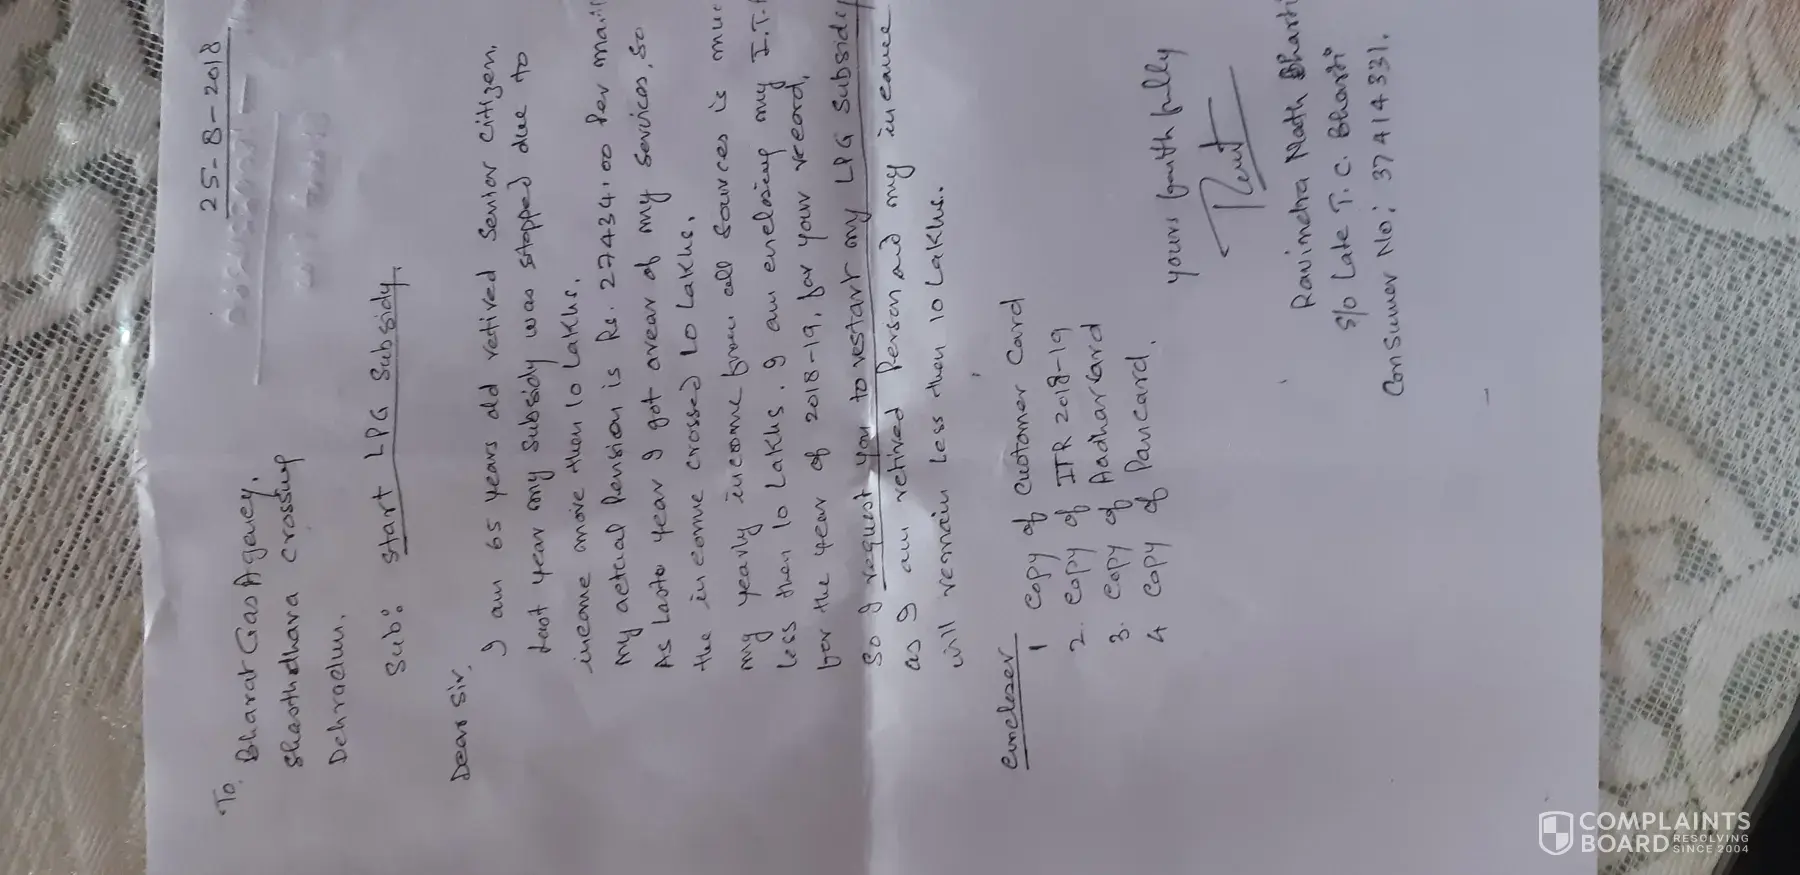 25-8-2018
To,
Bharat Gas Agency,
Shasthdhara crossing
Dehradun.
Sub: Start LPG Subsidy.
Dear Sir,
I am 65 years old retired Senior Citizen.
Last year my Subsidy was stopped due to
income more then 10 Lakhs.
My actual Pension is Rs. 27434.00 Per
As Last year I got arear of my Services, So
the income crossed 10 Lakhs.
my yearly income from all sources is
less then 10 Lakhs. I am enclosing my I.T.
for the year of 2018-19, for your record,
So I request you to restart my LPG Subsidy
as I am retired Person and my income
will remain Less then 10 Lakhs.
encloser
1 Copy of Customer Card
2. Copy of ITR 2018-19
3. Copy of Aadharcard
4 Copy of Pancard.
yours faithfully
Ravindra Nath Bharti
S/o Late T.C. Bharti
Consumer No: 37414331.
COMPLAINTS
BOARD RESOLVING SINCE 2004